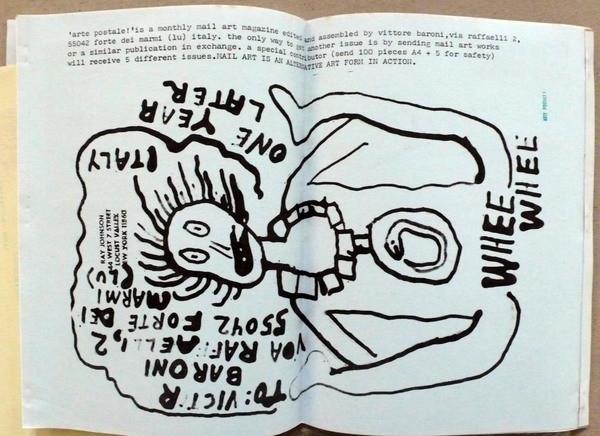 'arte postale!'is a monthly mail art magazine edited and assembled by vittore baroni,via raffaelli 2,
55042 forte dei marmi (lu) italy. the only way to get another issue is by sending mail art works
or a similar publication in exchange. a special contributor (send 100 pieces A4 + 5 for safety)
will receive 5 different issues.MAIL ART IS AN ALTERNATIVE ART FORM IN ACTION.
ONE YEAR
LATER
TO: VICTOR
BARONI
VOA RAFFAELLI, 2
55042 FORTE DEI
MARMI
(LU)
ITALY
RAY JOHNSON
44 WEST 7 STREET
LOCUST VALLEY
NEW YORK 11560
WHEE
WHEE